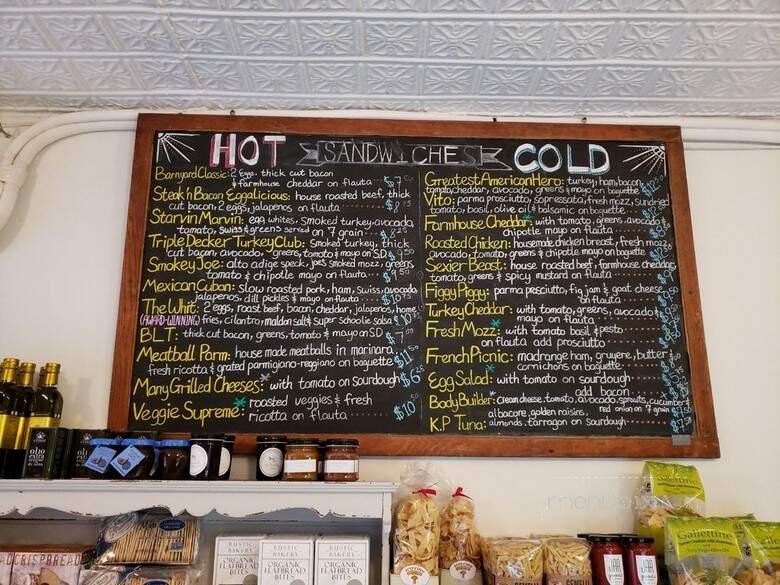 HOT SANDWICHES COLD
Barnyard Classic: 2 eggs, thick cut bacon
& farmhouse cheddar on flauta
Steak 'n Bacon Eggalicious: house roasted beef, thick
cut bacon, 2 eggs, jalapenos on flauta
Starvin Marvin: egg whites, smoked turkey, avocado,
tomato, swiss & greens served on 7 grain
Triple Decker Turkey Club: smoked turkey, thick
cut bacon, avocado, greens, tomato & mayo on SD
Smokey Joe: alto adige speck, joe's smoked mozz, greens,
tomato & chipotle mayo on flauta
Mexican Cuban: slow roasted pork, ham, swiss, avocado,
jalapenos, dill pickles & mayo on flauta
The Whit: 2 eggs, roast beef, bacon, cheddar, jalapenos, home
(AWARD-WINNING) fries, cilantro, maldon salt & super schoolie salsa
BLT: thick cut bacon, greens, tomato & mayo on SD
Meatball Parm: house made meatballs in marinara
fresh ricotta & grated parmigiano-reggiano on baguette
Many Grilled Cheeses:* with tomato on sourdough
Veggie Supreme:* roasted veggies & fresh
ricotta on flauta $10
Greatest American Hero: turkey, ham, bacon,
tomato, cheddar, avocado, greens & mayo on baguette
Vito: parma prosciutto, sopressata, fresh mozz, sundried
tomato, basil, olive oil & balsamic on baguette
Farmhouse Cheddar* with tomato, greens, avocado &
chipotle mayo on flauta
Roasted Chicken: housemade chicken breast, fresh mozz,
avocado, tomato, greens & chipotle mayo on baguette
Sexier Beast: house roasted beef, farmhouse cheddar,
tomato, greens & spicy mustard on flauta
Figgy Piggy: parma prosciutto, fig jam & goat cheese
on flauta
Turkey Cheddar: with tomato, greens, avocado &
mayo on flauta
Fresh Mozz:* with tomato basil & pesto
on flauta add prosciutto
French Picnic: madrange ham, gruyere, butter &
cornichons on baguette
Egg Salad:* with tomato on sourdough
add bacon
Body Builder:* cream cheese, tomato, avocado, sprouts, cucumber &
red onion on 7 grain
K.P Tuna: albacore, golden raisins,
almonds, tarragon on sourdough
RUSTIC BAKERY
ORGANIC FLATBREAD BITES
RUSTIC BAKERY
ORGANIC FLATBREAD BITES
RUSTIC BAKERY
ORGANIC FLATBREAD BITES
CRISPBREAD
Galletine